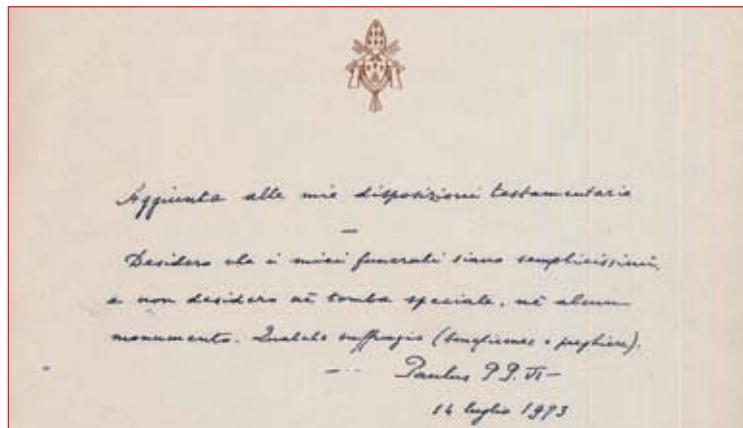 Aggiunta alle mie disposizioni testamentarie
—
Desidero che i miei funerali siano semplicissimi,
e non desidero nè tomba speciale, nè alcun
monumento. Qualche suffragio (beneficenze e preghiere).
Paulus PP. VI -
14 luglio 1973